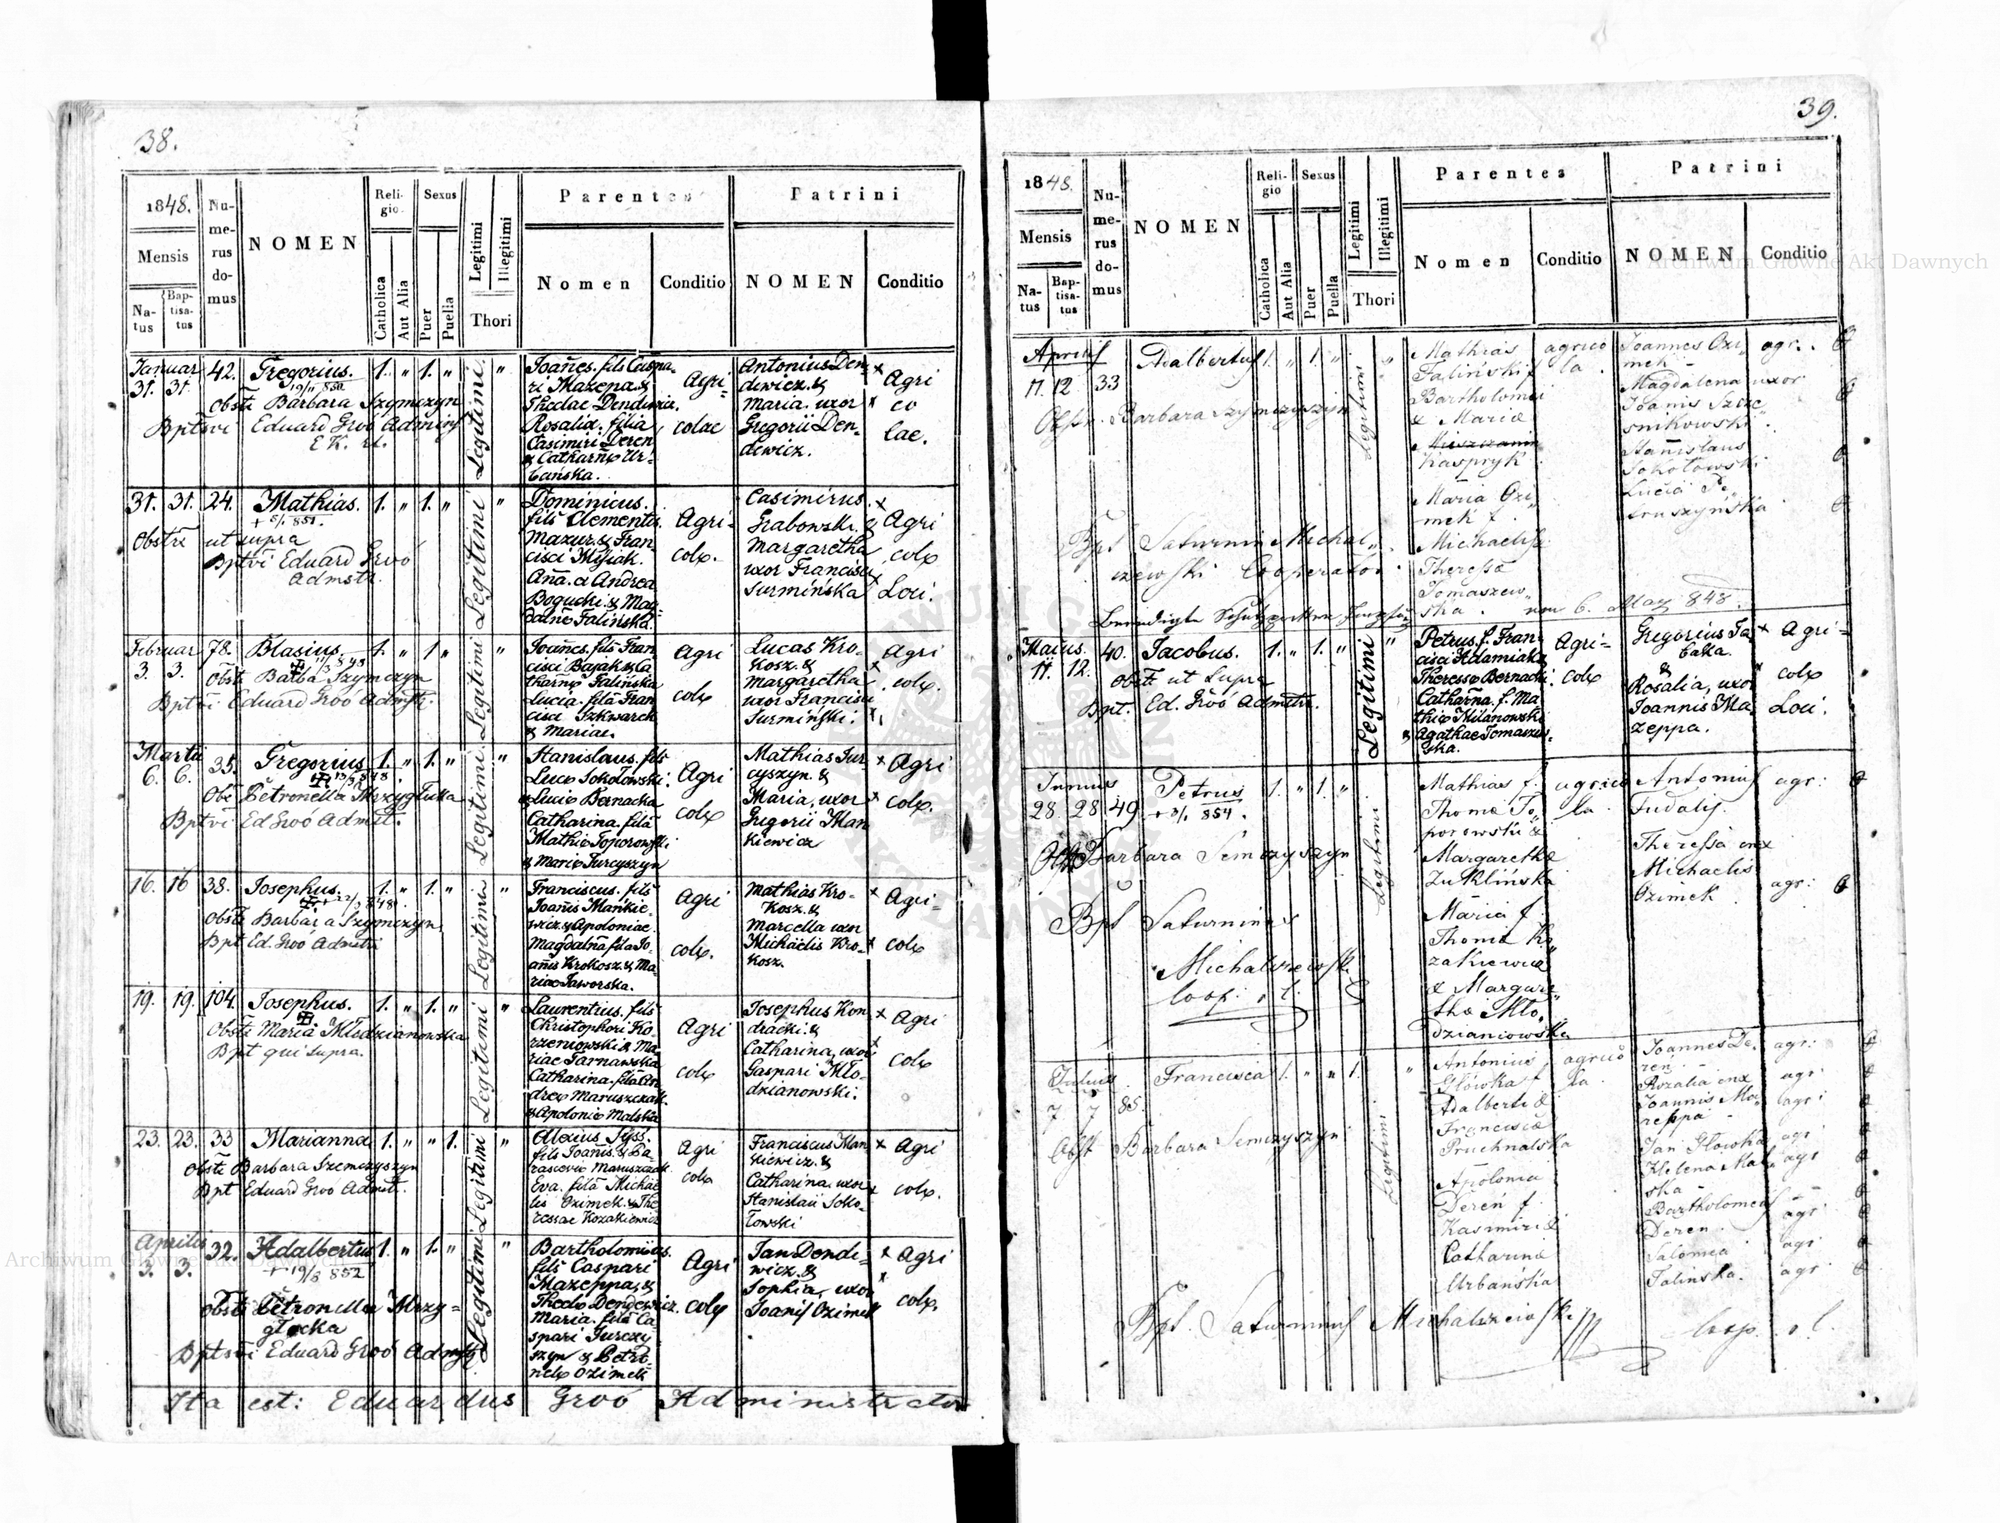 38.
1848.
Nu-
me-
rus
do-
mus
NOMEN
Reli-
gio.
Sexus
Legitimi
Illegitimi
Parentes
Patrini
Mensis
Na-
tus
Bap-
tisa-
tus
Catholica
Aut Alia
Puer
Puella
Thori
Nomen
Conditio
NOMEN
Conditio
Januar 42. Gregorius. 1. " 1. "
31. 31.
Obsti Barbara Szymczyn
Bptsvi Eduard Groó Adminis
Legitimi.
Joañes. fils Caspa-
ri Mazepa. &
Theclae Dendewicz.
Rosalia. filia
Casimiri Deren
& Catharinæ Ur-
bańska.
Agri-
colae
Antonius Den-
dewicz. &
Maria. uxor
Gregorii Den-
dewicz.
Agri
co
lae.
31. 31. 24. Mathias. 1. " 1. " "
Obstri ut supra
Bptvi Eduard Groó
Admstr.
Legitimi
Dominicus.
fils Clementis
Mazur. & Fran-
cisci Misiak.
Aña. a Andrea
Bogucki. & Mag-
dalnæ Falińska.
Agri-
colæ.
Casimirus
Grabowski. &
Margaretha
uxor Francisci
Surmińska
Agri
colæ
Loci.
Februar 78. Blasius. 1. " 1 " "
3. 3.
Obst Barba Szymczyn
Bptvi Eduard Groó Admstr.
Legitimi
Joañes. fils Fran
cisci Bajak & Ca
tharnæ Falińska
Lucia. filã Fran
cisci Szkwarek
& Mariae.
Agri
colæ
Lucas Kro-
kosz. &
Margaretha
uxor Francisci
Surmiński.
Agri
colæ.
Martii 35. Gregorius 1. " 1. " "
6. 6.
Obs Petronella Mrzygłucka
Bptvi Ed Groó Admst.
Legitimi
Stanislaus. fils
Lucæ Sokołowski.
& Luciæ Bernacka
Catharina. filã
Mathiæ Toporowski
& Mariæ Turcyszyn
Agri
colæ
Mathias Tur-
cyszyn. &
Maria, uxor
Gregorii Man
kiewicz
Agri
colæ.
16. 16 38. Josephus. 1. " 1. " "
Obsti Barbara Szymczyn,
Bpt Ed. Groó Admstr
Legitimi
Franciscus. fils
Joanis Mańkie-
wicz. & Apoloniae
Magdalña fila Jo-
añis Krokosz. & Ma-
riae Jaworska.
Agri
colæ.
Mathias Kro-
kosz. &
Marcella uxor
Michaelis Kro-
kosz.
Agri-
colæ
19. 19. 104. Josephus. 1. " 1. " "
Obsti Maria Młodzianowska
Bpt qui supra.
Legitimi
Laurentius. fils
Christophori Ko-
rzeniowski & Ma-
riae Tarnawska
Catharina. filã An-
dreæ Maruszczak.
& Apoloniæ Malska
Agri
colæ
Josephus Kon
dracki. &
Catharina, uxor
Gaspari Mło-
dzianowski.
Agri
colæ
23. 23. 33 Marianna 1. " " 1. "
Obsti Barbara Szemczyszyn
Bpt Eduard Groó Admst.
Legitimi
Alexius Syss.
fils Joanis. & Pa-
rascoviæ Maruszczak
Eva. filã Michae
lis Ozimek. & The
ressae Kozakiewicz
Agri
colæ
Franciscus Man
kiewicz. &
Catharina, uxor
Stanislaii Soko-
łowski
Agri
colæ.
Aprilis 32. Adalbertus 1. " 1. " "
3. 3.
+ 19/8 852
Obsti Petronella Mrzy=
głocka
Bptsvi Eduard Groó Admstr
Legitimi
Bartholomæus.
fils Caspari
Mazeppa, &
Theclæ Dendewicz.
Maria. filã Ca
spari Turczy
szyn & Petro-
nelæ Ozimek
Agri
colæ
Jan Dende-
wicz. &
Sophia, uxor
Joanis Ozimek
Agri
colæ.
Ita est: Eduardus Groó Administrator
39.
1848.
Nu-
me-
rus
do-
mus
NOMEN
Reli-
gio
Sexus
Legitimi
Illegitimi
Parentes
Patrini
Mensis
Na-
tus
Bap-
tisa-
tus
Catholica
Aut Alia
Puer
Puella
Thori
Nomen
Conditio
NOMEN
Conditio
Aprilis Adalbertus 1. " 1. " "
11. 12 33
Obst. Barbara Szymczyszyn
Legitimi
Mathias
Faliński f.
Bartholomei
& Maria
Kaspryk
Maria Ozi-
mek f.
Michaelis &
Theressa
Tomaszew-
ska.
agrico
la.
Joannes Ozi-
mek -
Magdalena uxor
Joanis Szcze
śnikowski.
Stanislaus
Sokołowski
Lucia Pe-
truszyńska
agr.
Bpt Saturnin Michal-
czewski Cooperator
6. May 848.
Maius. 40. Jacobus. 1. " 1. " "
11. 12.
Obstr. ut Supra
Bpt. Ed. Groó Admstr.
Legitimi
Petrus. f. Fran-
cisci Adamiak &
Theressæ Bernacki.
Catharña. f. Ma-
thiæ Milanowski
& Agathae Tomaszew-
ska.
Agri=
colæ
Gregorius Ja
baka.
&
Rosalia, uxor
Joannis Ma-
zeppa.
Agri=
colæ
Loci.
Junius Petrus 1. " 1. "
28. 28 49 + 3/1 854.
Obst Barbara Semczyszyn
Bpt Saturninus
Michalczewski
Coop. r. l.
Legitimi
Mathias f.
Thoma To-
porowski &
Margaretha
Zuklińska
Maria f.
Thoma Ko-
zakiewicz
& Margare-
tha Mło-
dzianiowska
agrico
la.
Antonius
Fudalij.
Theressa uxr
Michaelis
Ozimek.
agr:
agr:
Julius Francisca 1. " " 1. "
7 7 85.
Obst Barbara Semczyszyn
Legitimi
Antonius
Główka f.
Adalberti &
Francisca
Pruchnalska
Apolonia
Dereń f.
Kasimiri &
Catharina
Urbańska
agrico
la.
Joannes De-
ren.
Rozalia uxr
Joannis Ma-
zeppa -
Jan Głowka
Helena Mal-
ska -
Bartholomeus
Deren -
Salomea
Falinska.
agr:
agr.
agr.
agr
agr
agr.
agr
agr.
Bpt. Saturninus Michalczewski
Coop. r. l.
Archiwum Główne Akt Dawnych
Archiwum Główne Akt Dawnych